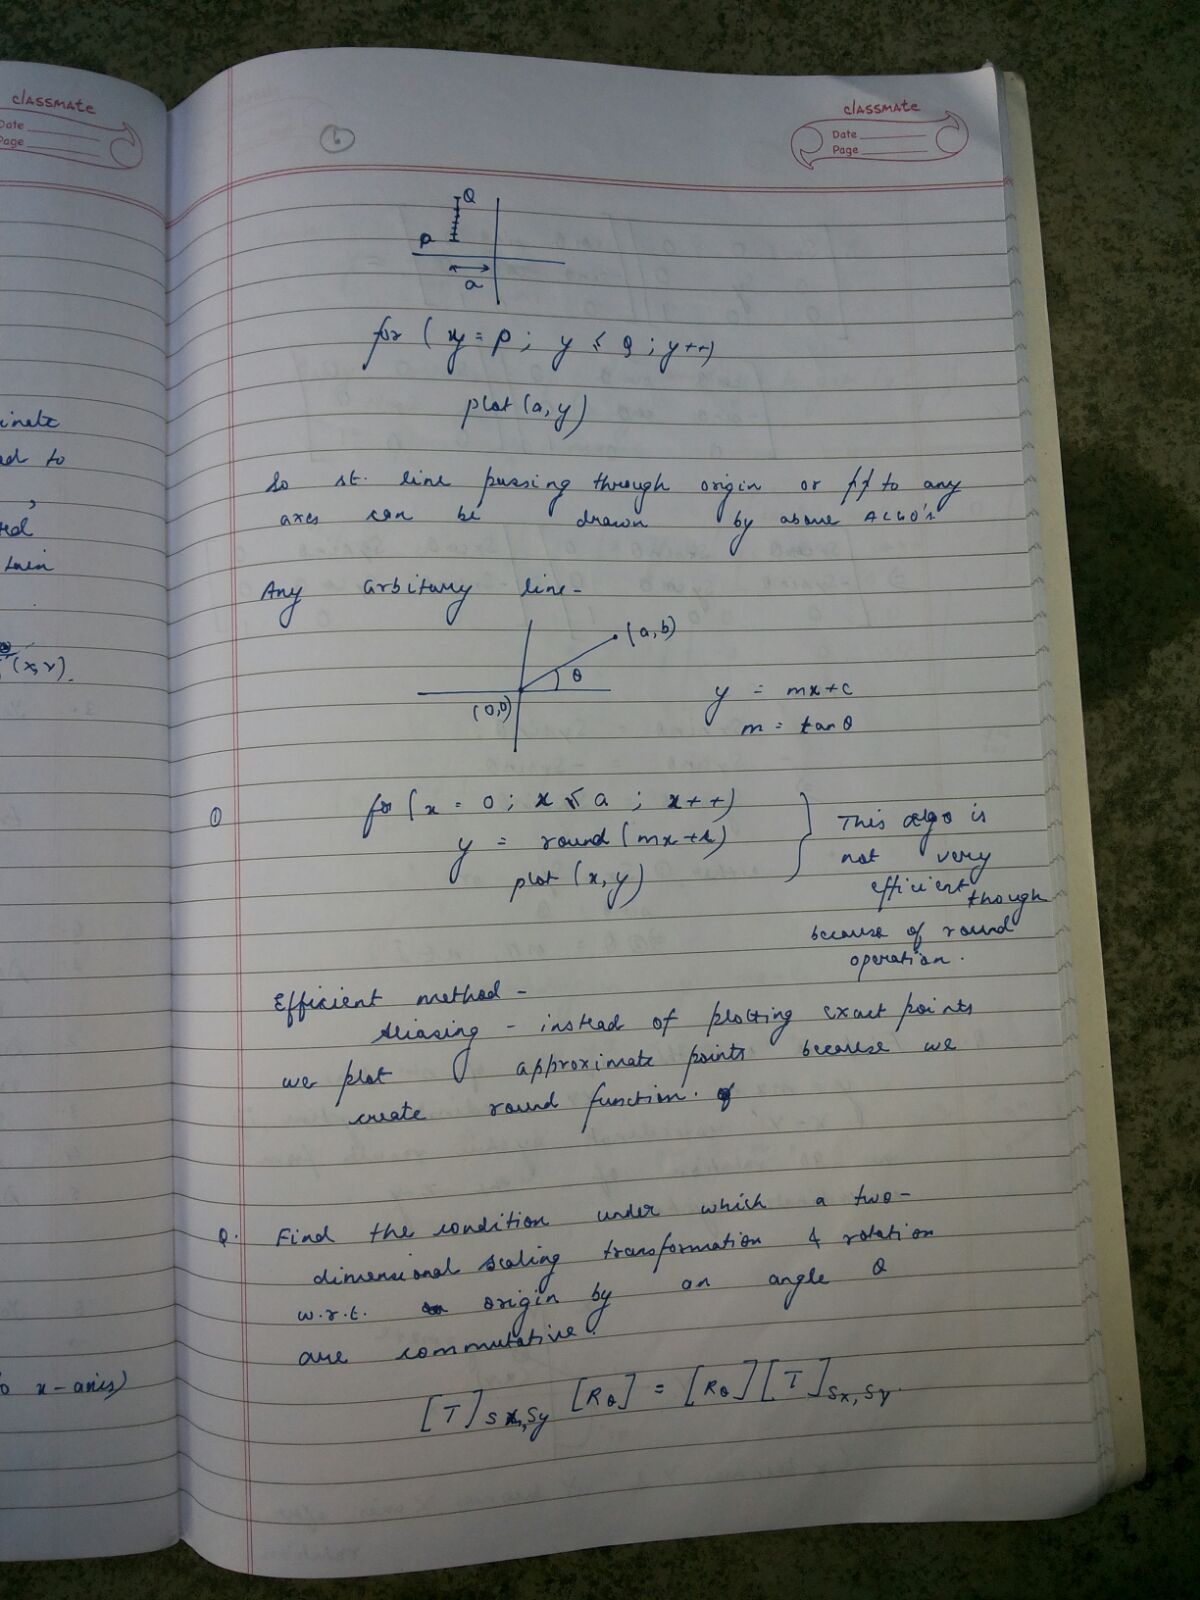 classmate
Date
Page
inate
ad to
,
tain
(x,y).
o x-axis)
classmate
Date
Page
6
Q
P
a
for ( y = P ; y ≤ Q ; y++)
plot (a, y)
So st. line passing through origin or // to any
axes can be drawn by above ALGO's
Any arbitary line -
(a, b)
θ
(0,0)
y = mx+c
m = tan θ
① for (x = 0 ; x ≤ a ; x++)
y = round (mx+c)
plot (x, y)
This algo is
not very
efficient though
because of round
operation.
Efficient method -
Aliasing - instead of plotting exact points
we plot approximate points because we
create round function.
Q. Find the condition under which a two-
dimensional scaling transformation & rotation
w.r.t. origin by an angle θ
are commutative.
[T]Sx,Sy [Rθ] = [Rθ] [T]Sx,Sy.